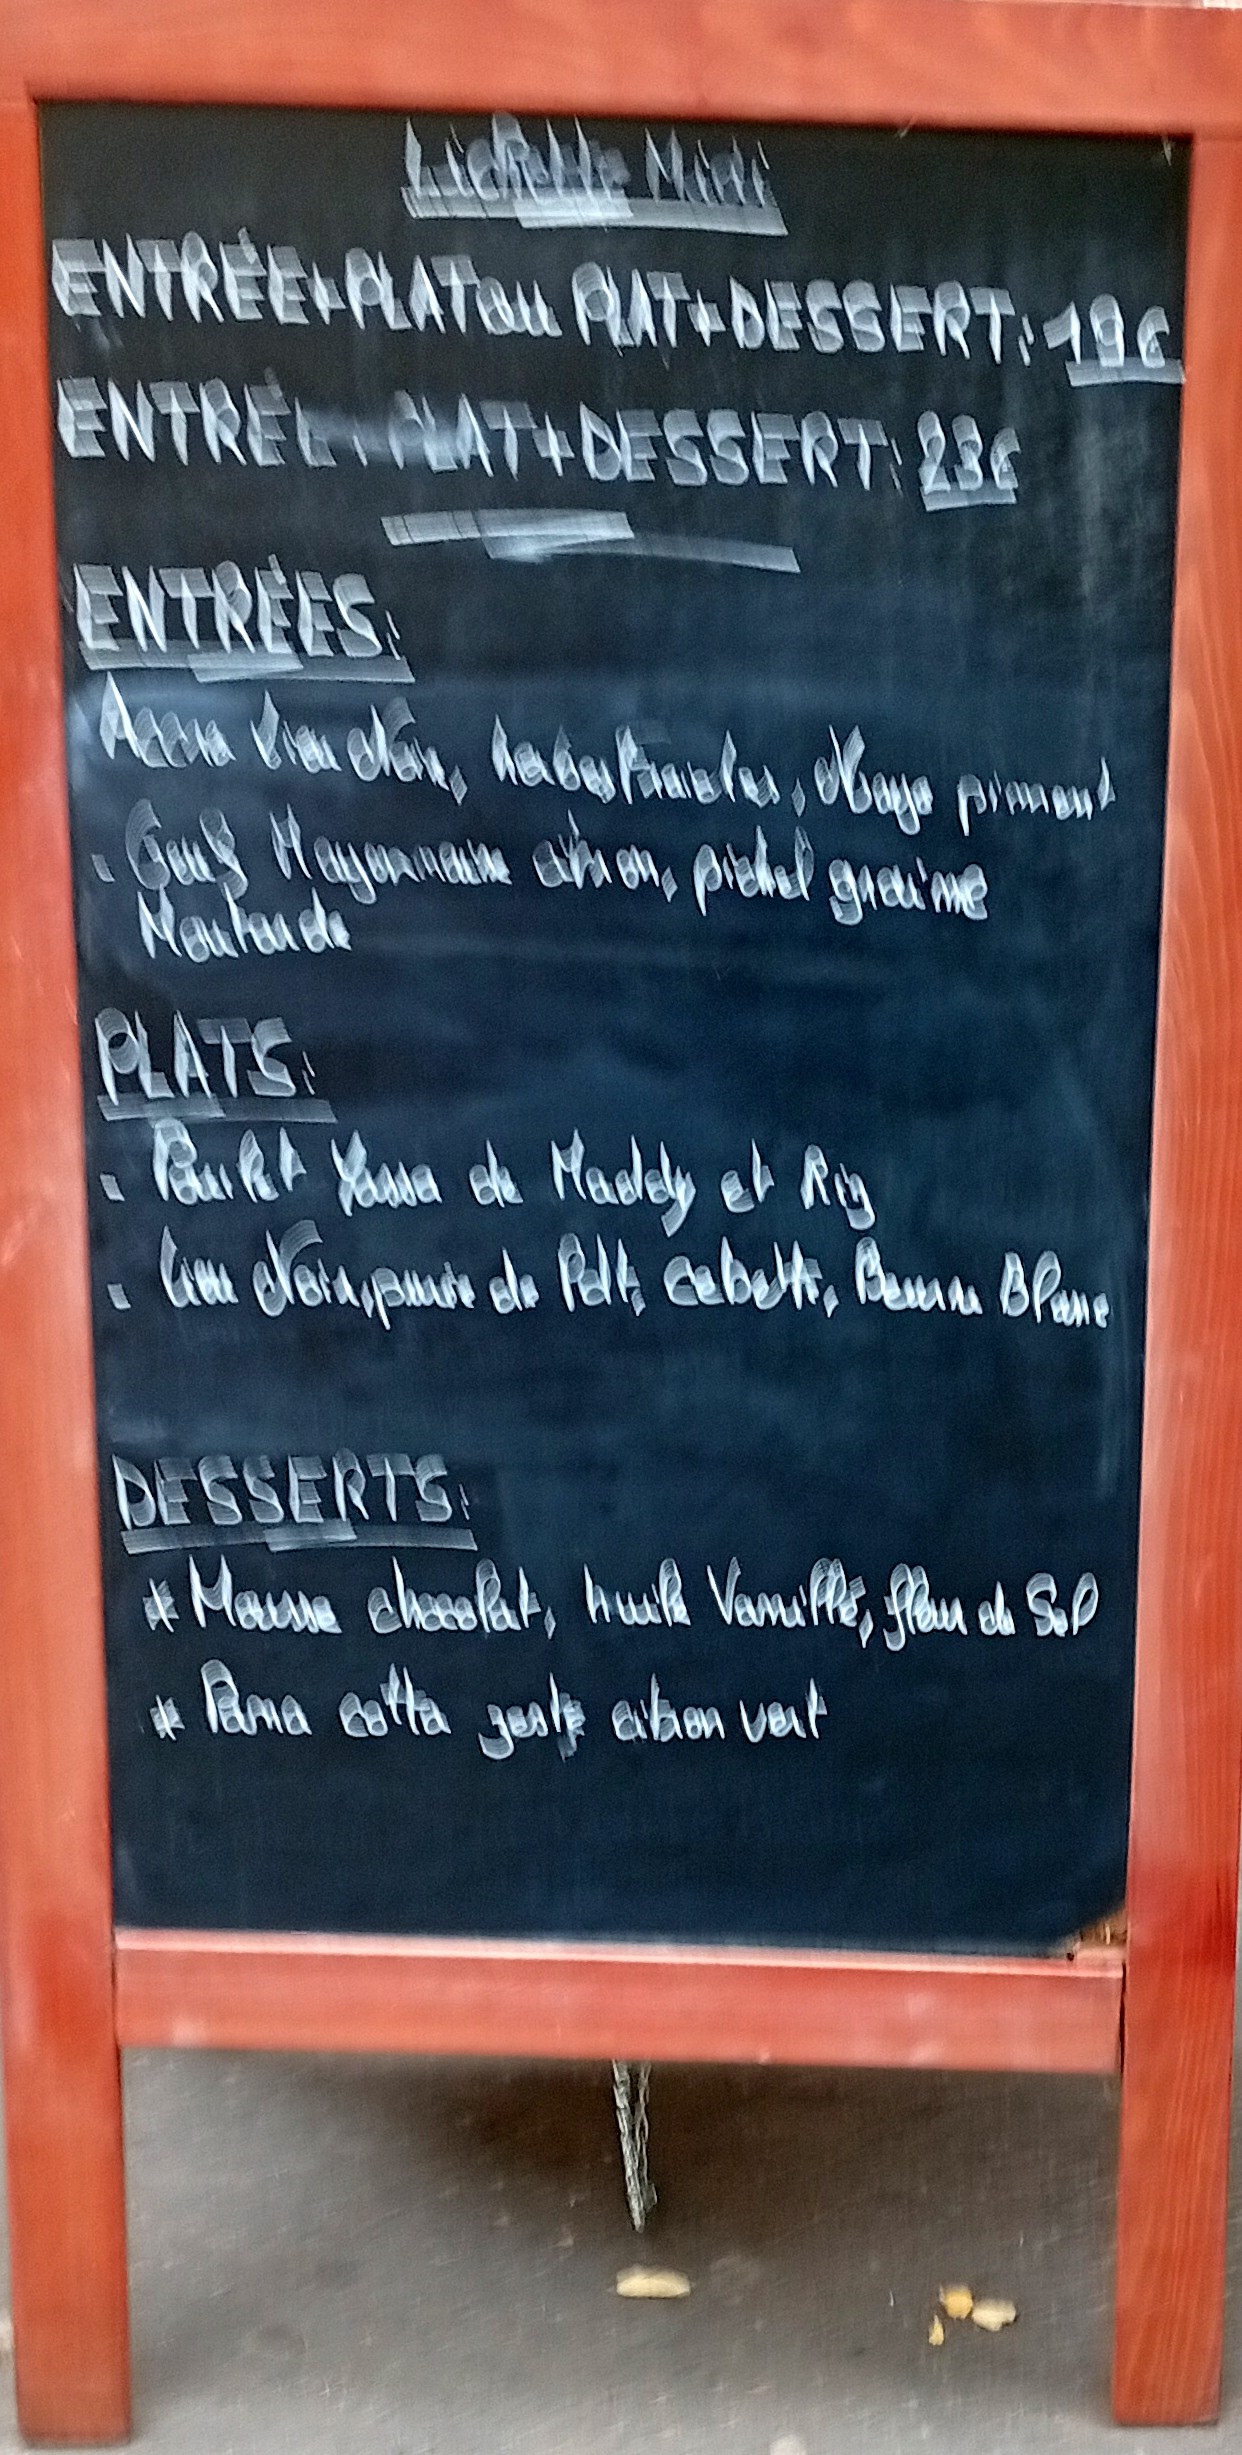 Lichette Midi
ENTRÉE+PLAT ou PLAT+DESSERT: 19€
ENTRÉE+PLAT+DESSERT: 23€
ENTRÉES:
Accra lieu noir, piment
. Oeuf Mayonnaise citron, pickel graine
Moutarde
PLATS:
. Poulet Yassa de Maddy et Riz
. Lieu Noir, purée de Pdt, cebette, Beurre Blanc
DESSERTS:
* Mousse chocolat, huile Vanille, fleur de Sel
* Pana cotta zeste citron vert